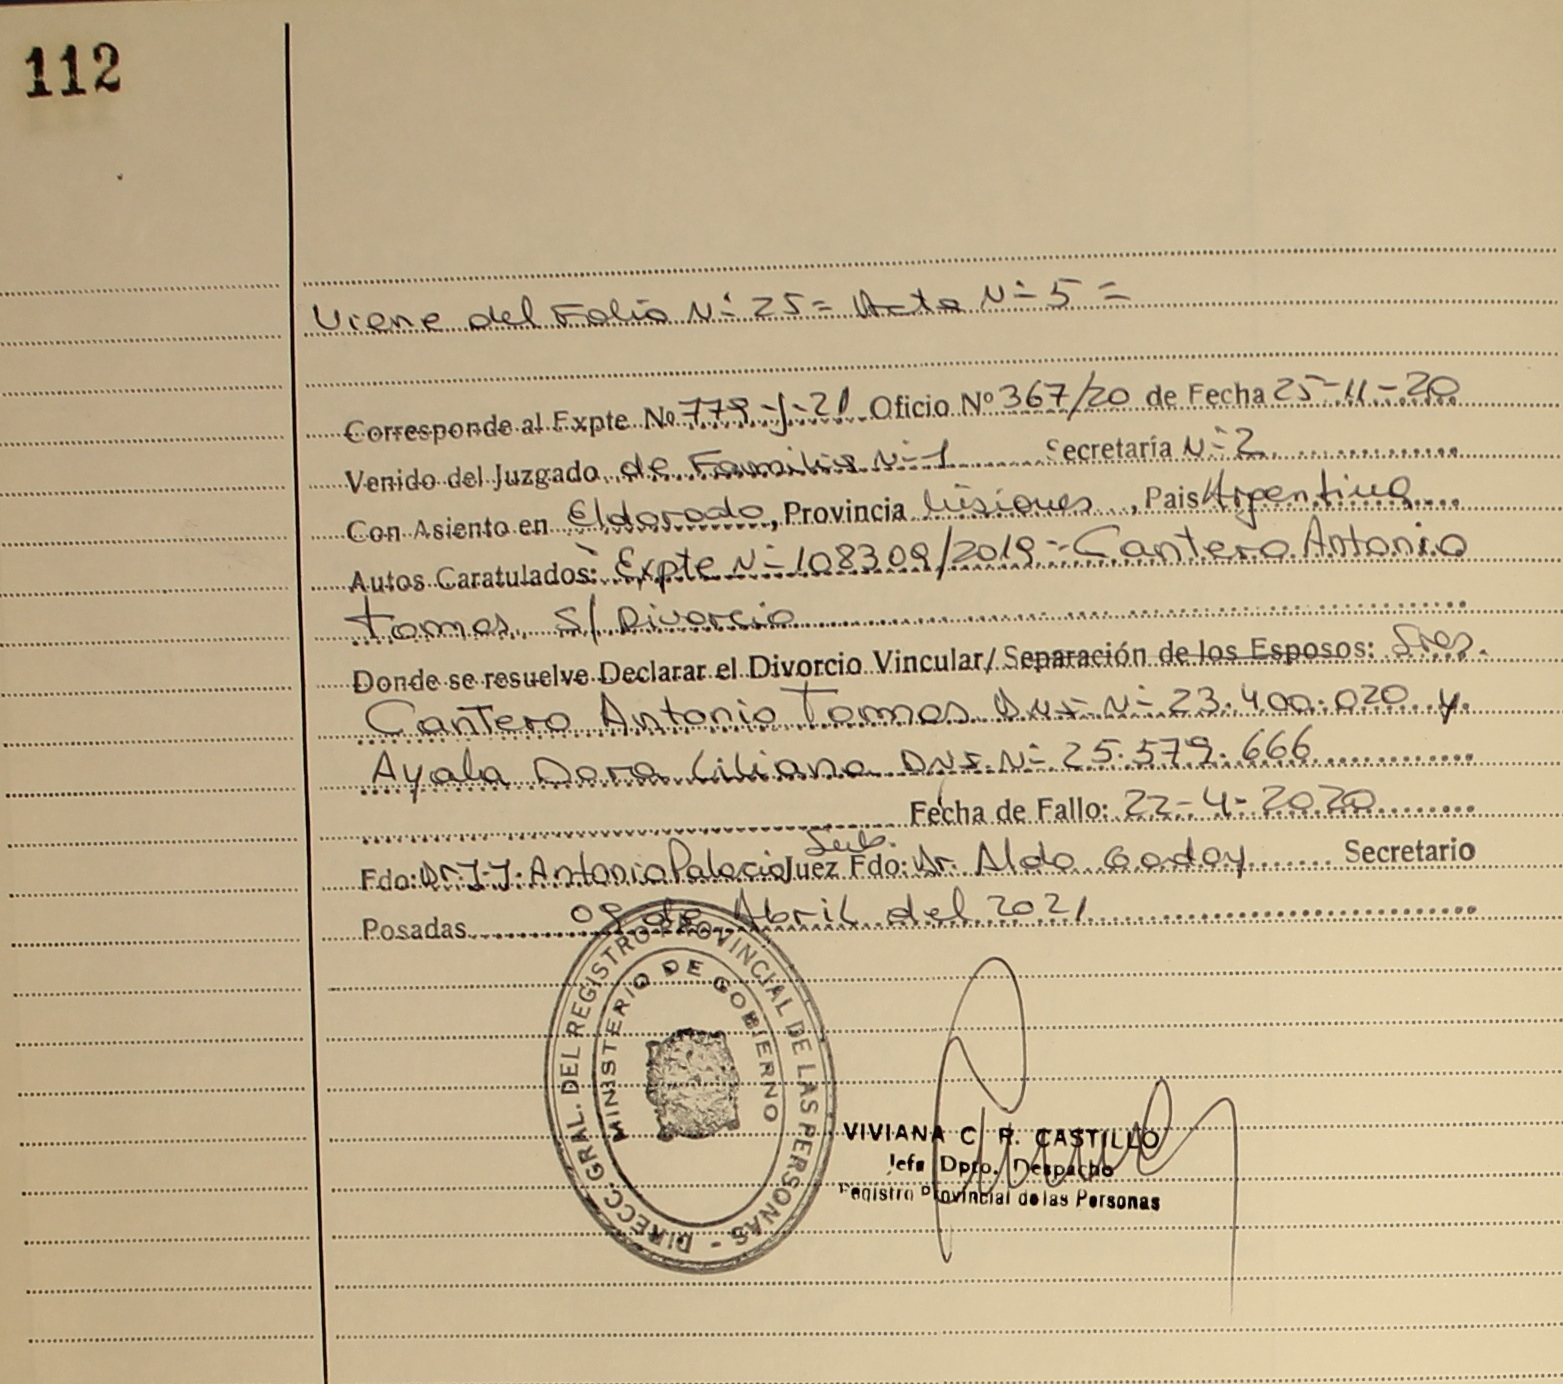 112
Viene del Folio Nº 25 = Acta Nº 5 =
Corresponde al Expte Nº 779-J-21 Oficio Nº 367/20 de Fecha 25-11-20
Venido del Juzgado de Familia Nº 1 Secretaría Nº 2
Con Asiento en Eldorado, Provincia Misiones, Pais Argentina
Autos Caratulados: Expte Nº 108309/2019 - Cantero Antonio
Tomas S/ Divorcio
Donde se resuelve Declarar el Divorcio Vincular/ Separación de los Esposos: Sres.
Cantero Antonio Tomas DNI Nº 23.400.020 y
Ayala Dora Liliana DNI Nº 25.579.666
Fecha de Fallo: 22-4-2020
Sub.
Fdo: Dr. J.J. Antonio Palacio Juez Fdo: Dr. Aldo Godoy Secretario
Posadas 09 de Abril del 2021
DIRECC. GRAL. DEL REGISTRO PROVINCIAL DE LAS PERSONAS -
MINISTERIO DE GOBIERNO
VIVIANA C. R. CASTILLO
Jefa Dpto. Despacho
Registro Provincial de las Personas